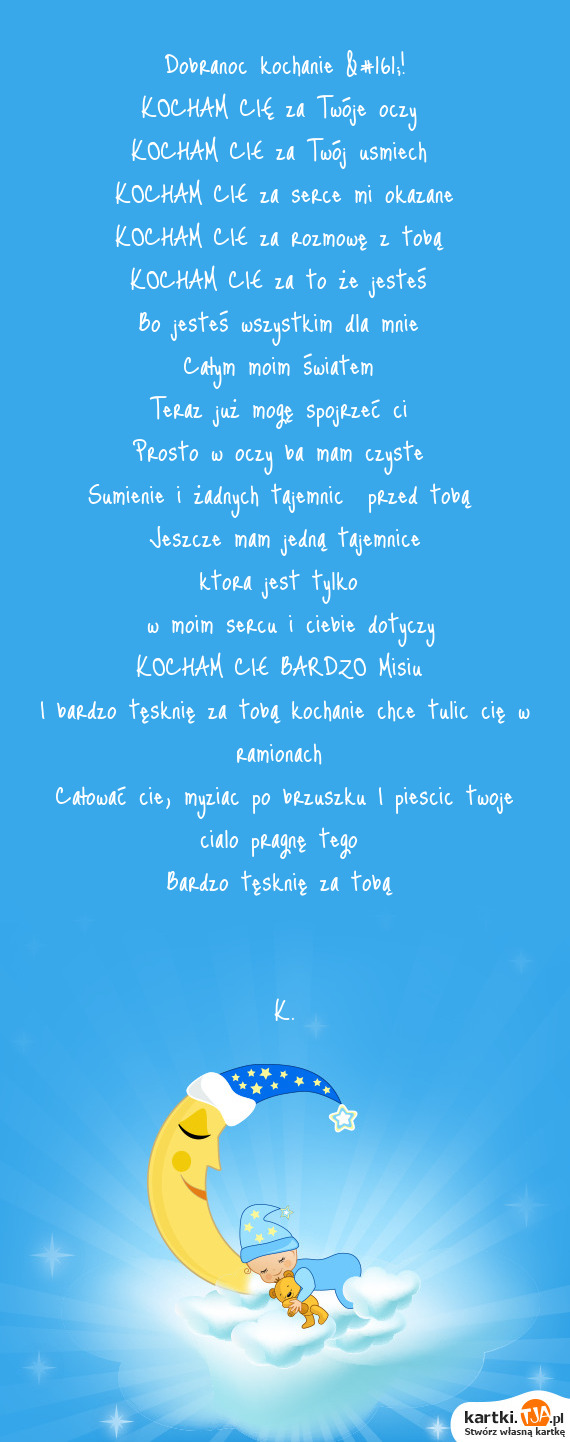 Dobranoc kochanie &#161;!
KOCHAM CIĘ za Twóje oczy
KOCHAM CIE za Twój usmiech
KOCHAM CIE za serce mi okazane
KOCHAM CIE za rozmowę z tobą
KOCHAM CIE za to że jesteś
Bo jesteś wszystkim dla mnie
Całym moim światem
Teraz już mogę spojrzeć ci
Prosto w oczy ba mam czyste
Sumienie i żadnych tajemnic przed tobą
Jeszcze mam jedną tajemnice
ktora jest tylko
w moim sercu i ciebie dotyczy
KOCHAM CIE BARDZO Misiu
I bardzo tęsknię za tobą kochanie chce tulic cię w
ramionach
Całować cie, myziac po brzuszku I piescic twoje
cialo pragnę tego
Bardzo tęsknię za tobą
K.
kartki.TJA.pl
Stwórz własną kartkę